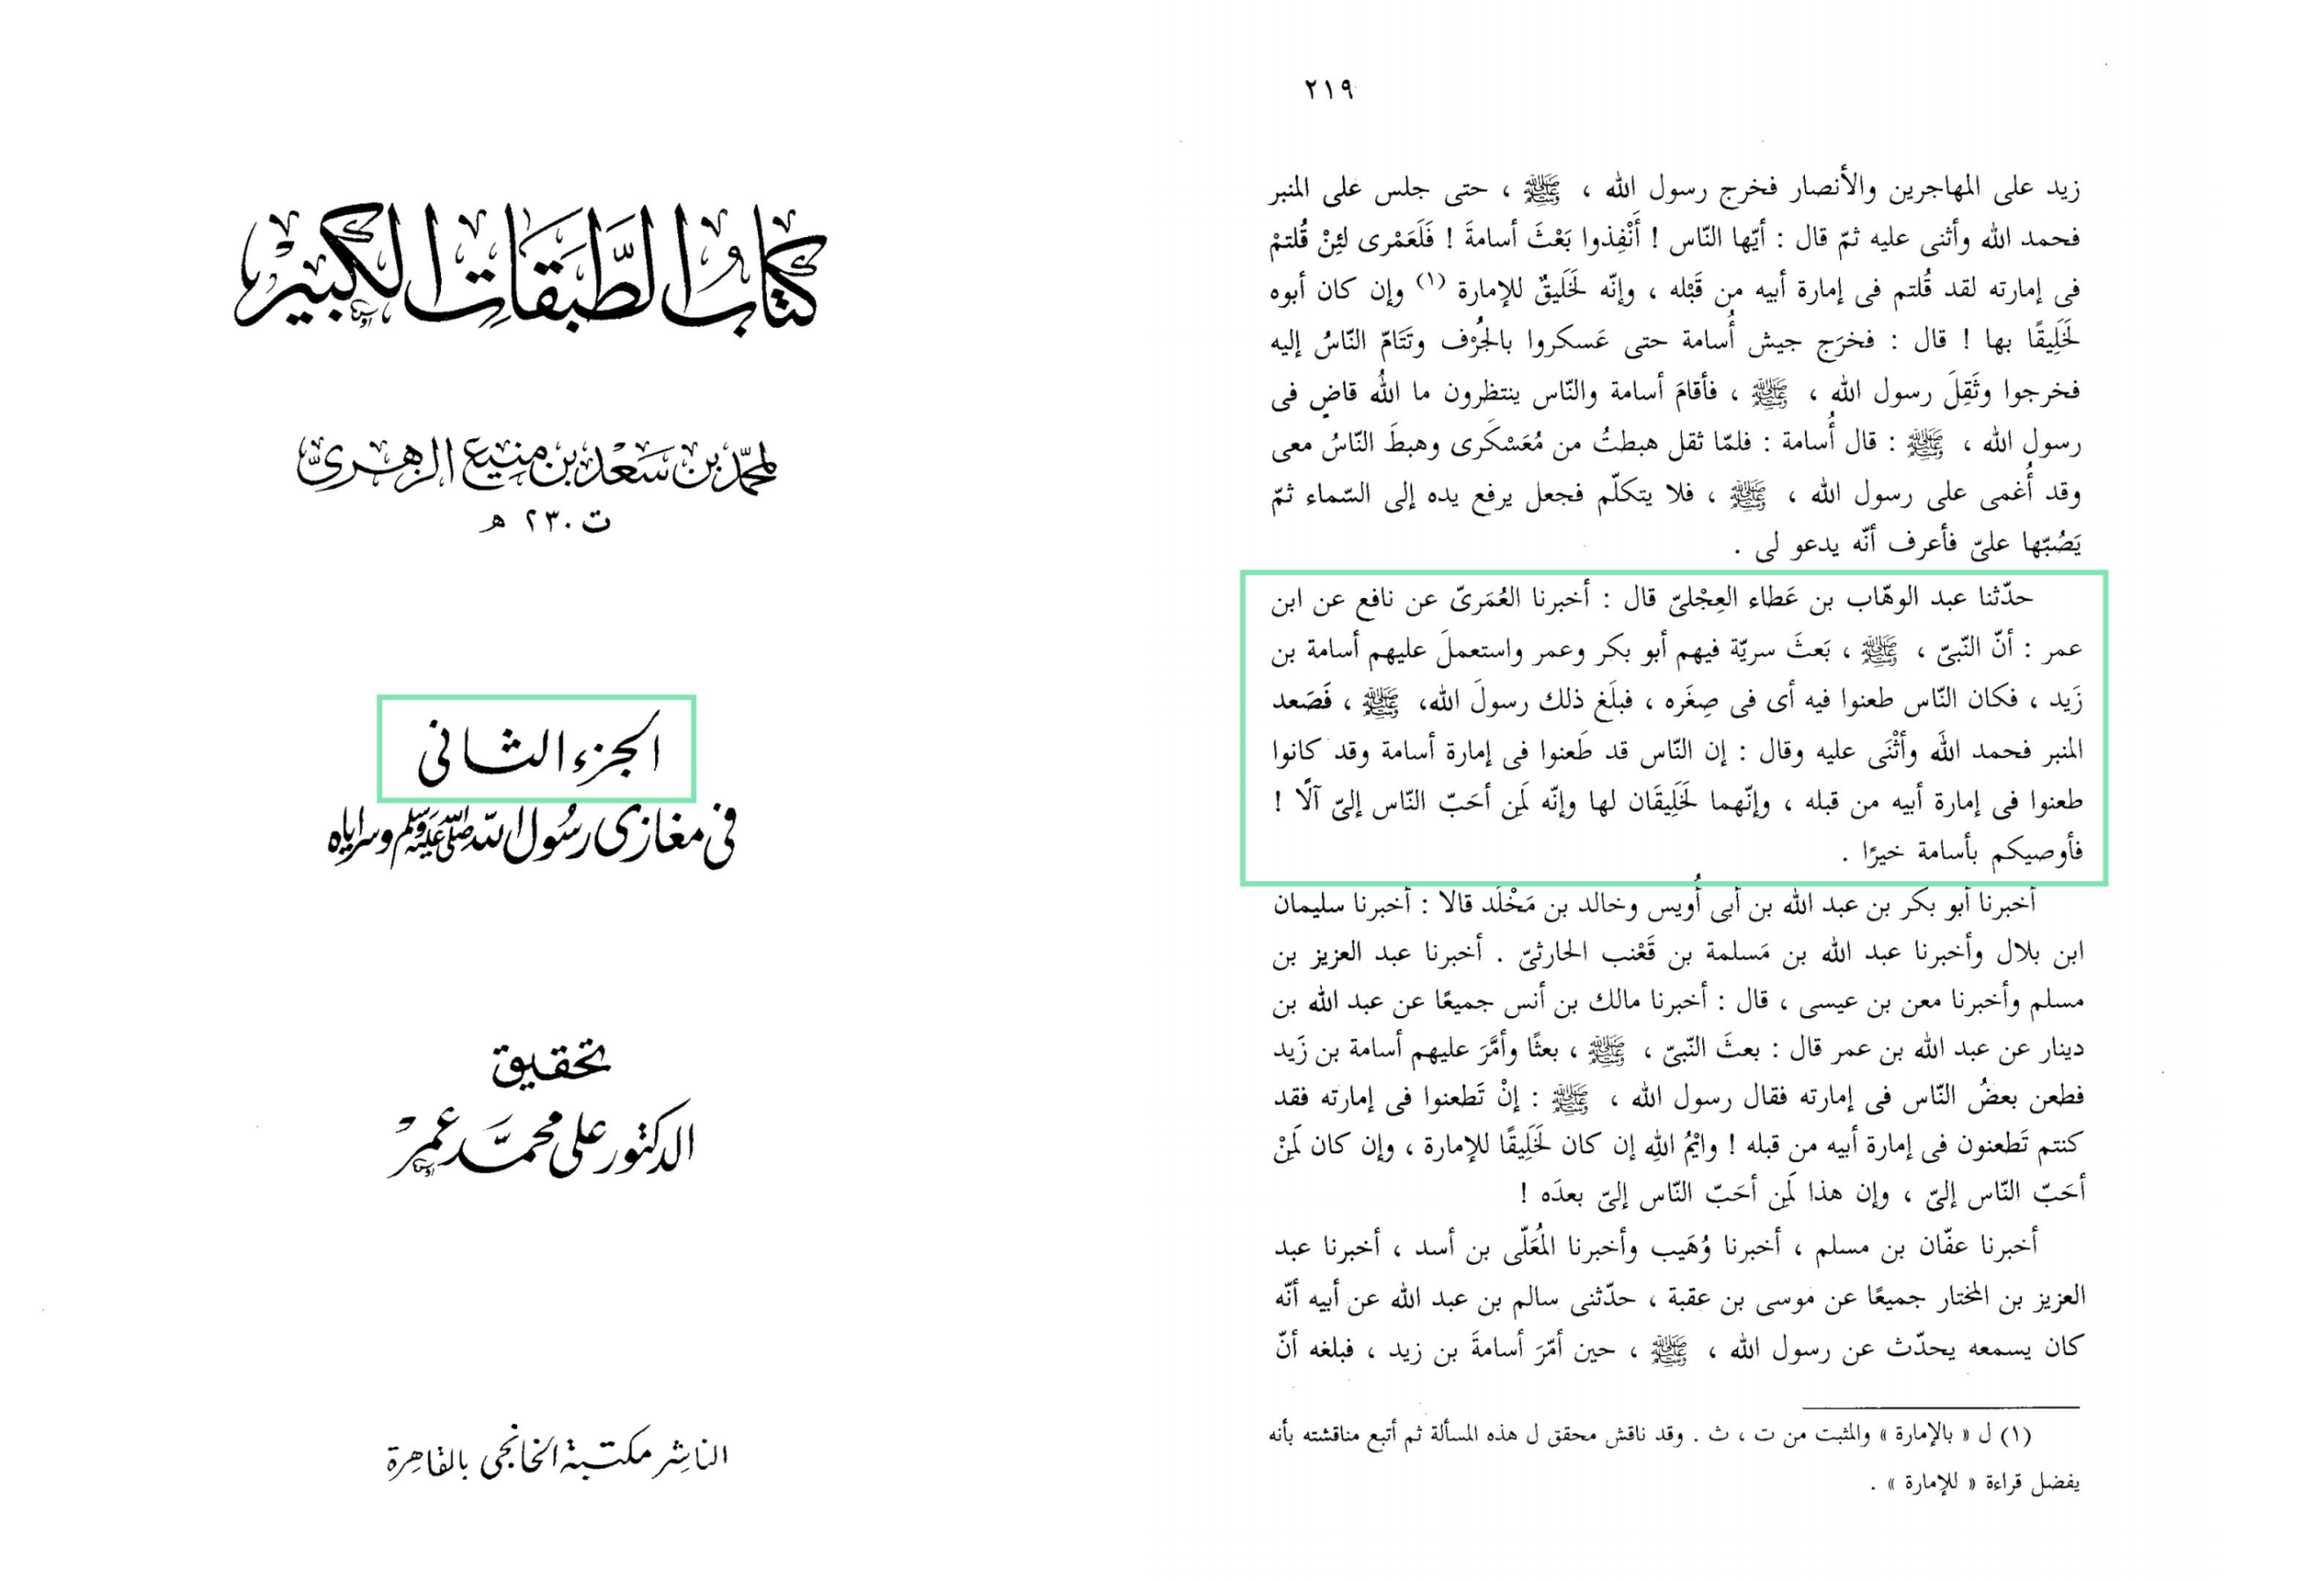 كتاب الطبقات الكبير
لمحمد بن سعد بن منيع الزهرى
ت ٢٣٠ هـ
الجزء الثانى
فى مغازى رسول الله ﷺ وسراياه
تحقيق
الدكتور على محمد عمر
الناشر مكتبة الخانجى بالقاهرة
٢١٩
زيد على المهاجرين والأنصار فخرج رسول الله ، ﷺ ، حتى جلس على المنبر
فحمد الله وأثنى عليه ثمّ قال : أيّها النّاس ! أَنْفِذوا بَعْثَ أسامةَ ! فَلَعَمْرى لئِنْ قُلتمْ
فى إمارته لقد قُلتم فى إمارة أبيه من قَبْله ، وإنّه لَخَليقٌ للإمارة (١) وإن كان أبوه
لَخَلِيقًا بها ! قال : فخرَج جيش أُسامة حتى عَسكروا بالجُرْف وتَتَامّ النّاسُ إليه
فخرجوا وثَقِلَ رسول الله ، ﷺ ، فأقامَ أسامة والنّاس ينتظرون ما اللهُ قاضٍ فى
رسول الله ، ﷺ : قال أُسامة : فلمّا ثقل هبطتُ من مُعَسْكَرى وهبطَ النّاسُ معى
وقد أُغمى على رسول الله ، ﷺ ، فلا يتكلّم فجعل يرفع يده إلى السّماء ثمّ
يَصُبّها علىّ فأعرف أنّه يدعو لى .
حدّثنا عبد الوهّاب بن عَطاء العِجْلىّ قال : أخبرنا العُمَرىّ عن نافع عن ابن
عمر : أنّ النّبىّ ، ﷺ ، بَعثَ سريّة فيهم أبو بكر وعمر واستعملَ عليهم أسامة بن
زَيد ، فكان النّاس طعنوا فيه أى فى صِغَره ، فبلَغ ذلك رسولَ الله، ﷺ ، فَصَعد
المنبر فحمد اللهَ وأثْنَى عليه وقال : إن النّاس قد طَعنوا فى إمارة أسامة وقد كانوا
طعنوا فى إمارة أبيه من قبله ، وإنّهما لَخَلِيقَان لها وإنّه لَمِن أحَبّ النّاس إلىّ آلًا !
فأوصيكم بأسامة خيرًا .
أخبرنا أبو بكر بن عبد الله بن أبى أُويس وخالد بن مَخْلَد قالا : أخبرنا سليمان
ابن بلال وأخبرنا عبد الله بن مَسلمة بن قَعْنب الحارثىّ . أخبرنا عبد العزيز بن
مسلم وأخبرنا معن بن عيسى ، قال : أخبرنا مالك بن أنس جميعًا عن عبد الله بن
دينار عن عبد الله بن عمر قال : بعثَ النّبىّ ، ﷺ ، بعثًا وأمَّرَ عليهم أسامة بن زَيد
فطعن بعضُ النّاس فى إمارته فقال رسول الله ، ﷺ : إنْ تَطعنوا فى إمارته فقد
كنتم تَطعنون فى إمارة أبيه من قبله ! وايْمُ اللهِ إن كان لَخَلِيقًا للإمارة ، وإن كان لَمِنْ
أحَبّ النّاس إلىّ ، وإن هذا لَمِن أحَبّ النّاس إلىّ بعدَه !
أخبرنا عفّان بن مسلم ، أخبرنا وُهَيب وأخبرنا المُعَلّى بن أسد ، أخبرنا عبد
العزيز بن المختار جميعًا عن موسى بن عقبة ، حدّثنى سالم بن عبد الله عن أبيه أنّه
كان يسمعه يحدّث عن رسول الله ، ﷺ ، حين أمّرَ أسامةَ بن زيد ، فبلغه أنّ
(١) ل « بالإمارة » والمثبت من ت ، ث . وقد ناقش محقق ل هذه المسألة ثم أتبع مناقشته بأنه
يفضل قراءة « للإمارة » .